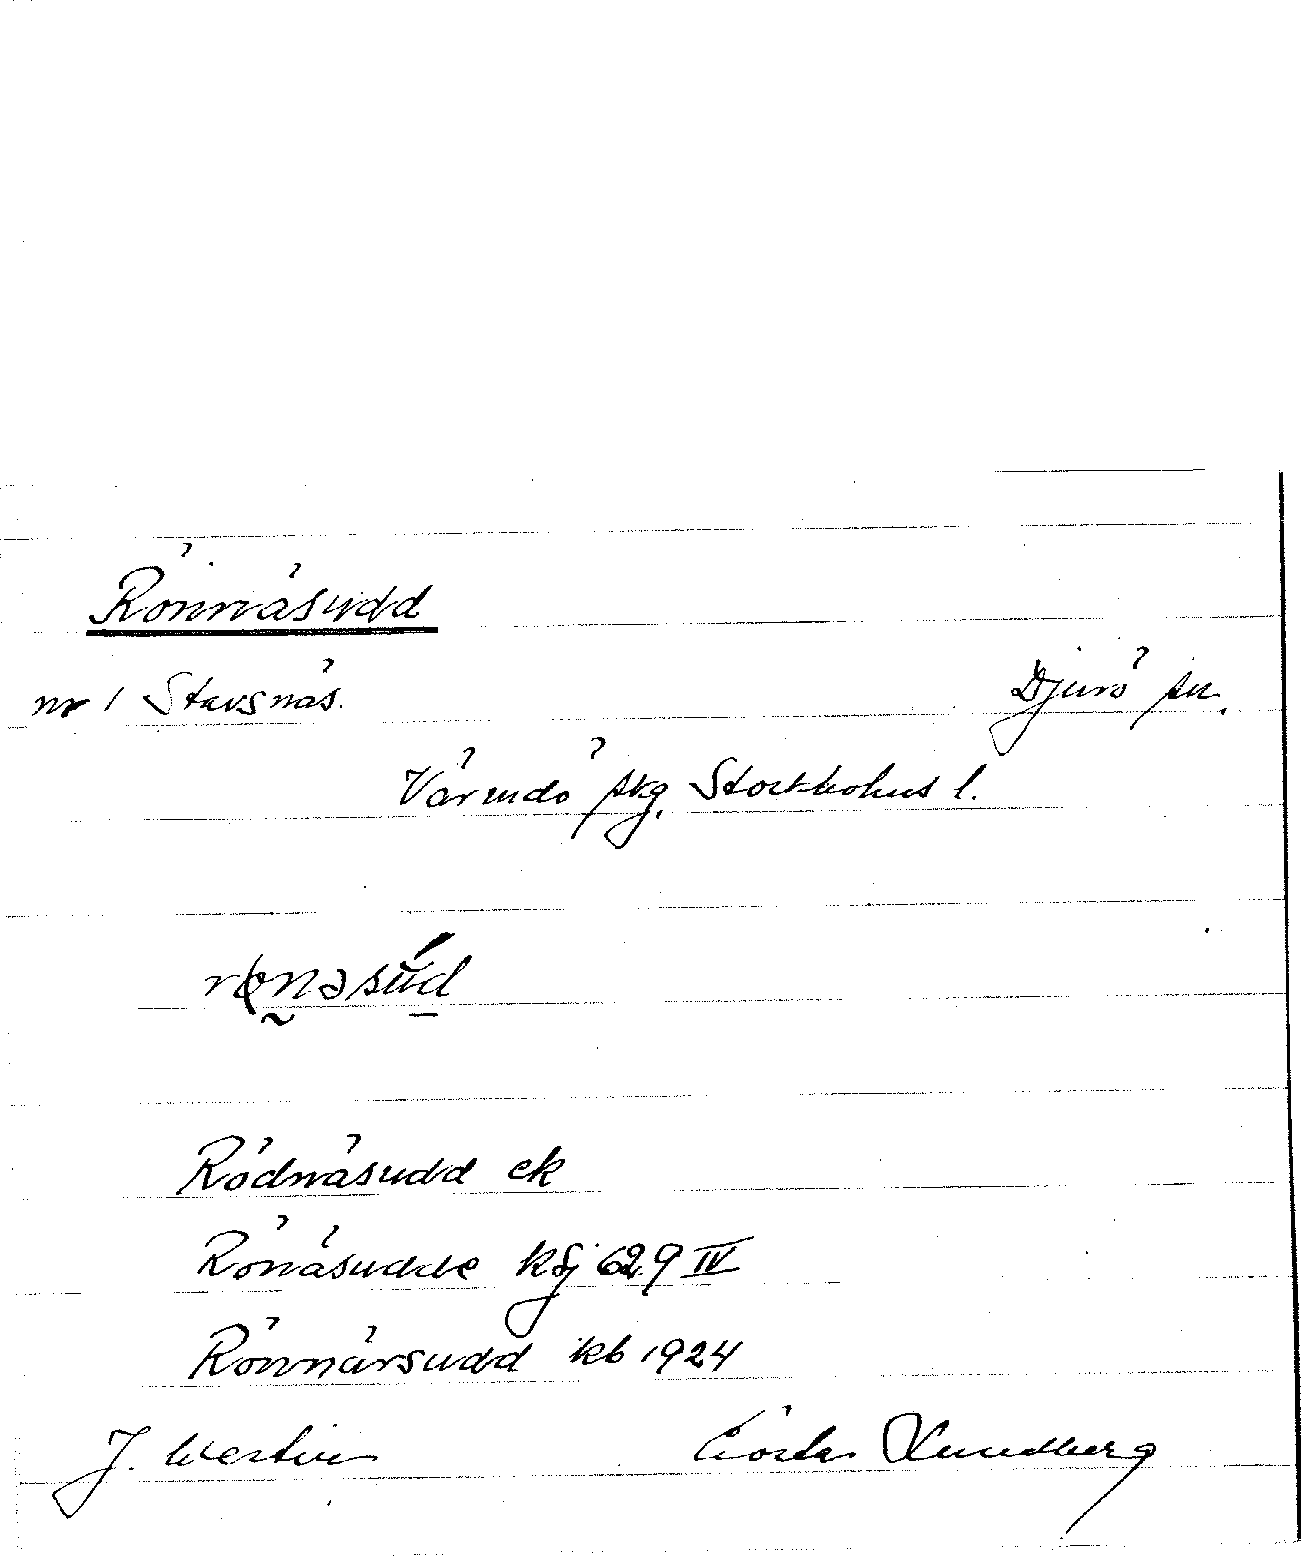 Rönnäsudd
nr 1 Stavsnäs. Djurö sn.
Värmdö skg. Stockholms l.
rønəsúd
Rödnäsudd ek
Rönäsudde kgj 629 IV
Rönnärsudd kb 1924
J. Westin Gösta Lundberg